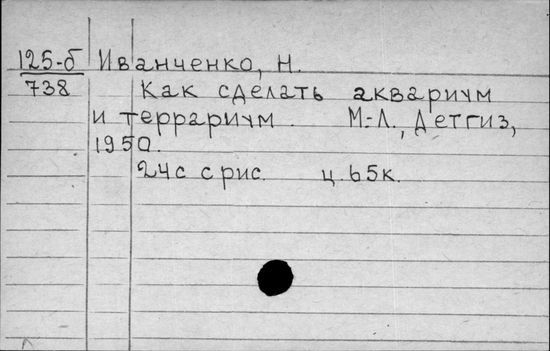 125-б Иванченко, Н.
738 Как сделать аквариум
и террариум. М.-Л., Детгиз,
1950.
24с с рис. ц. 65к.